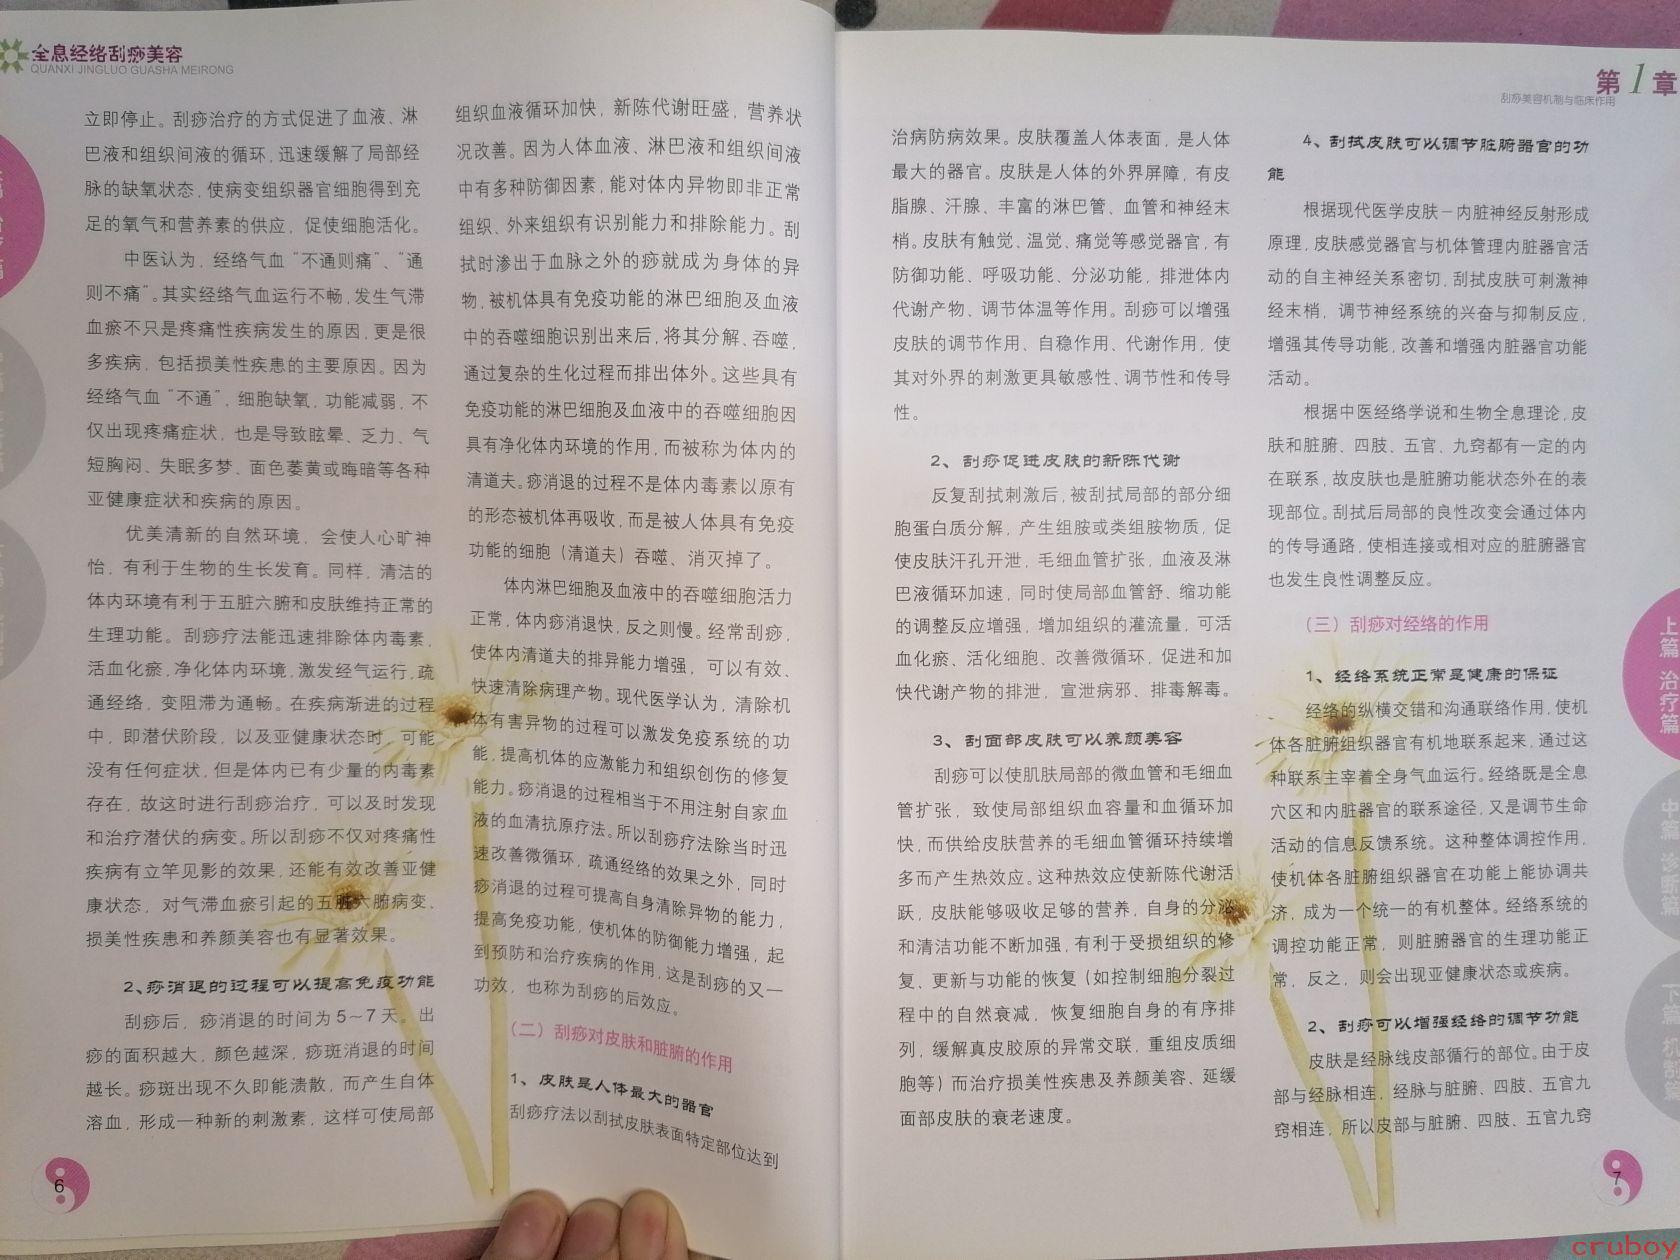 全息经络刮痧美容
QUANXI JINGLUO GUASHA MEIRONG
立即停止。刮痧治疗的方式促进了血液、淋
巴液和组织间液的循环,迅速缓解了局部经
脉的缺氧状态,使病变组织器官细胞得到充
足的氧气和营养素的供应,促使细胞活化。
中医认为,经络气血“不通则痛”、“通
则不痛”。其实经络气血运行不畅,发生气滞
血瘀不只是疼痛性疾病发生的原因,更是很
多疾病,包括损美性疾患的主要原因。因为
经络气血“不通”,细胞缺氧,功能减弱,不
仅出现疼痛症状,也是导致眩晕、乏力、气
短胸闷、失眠多梦、面色萎黄或晦暗等各种
亚健康症状和疾病的原因。
优美清新的自然环境,会使人心旷神
怡,有利于生物的生长发育。同样,清洁的
体内环境有利于五脏六腑和皮肤维持正常的
生理功能。刮痧疗法能迅速排除体内毒素,
活血化瘀,净化体内环境,激发经气运行,疏
通经络,变阻滞为通畅。在疾病渐进的过程
中,即潜伏阶段,以及亚健康状态时,可能
没有任何症状,但是体内已有少量的内毒素
存在,故这时进行刮痧治疗,可以及时发现
和治疗潜伏的病变。所以刮痧不仅对疼痛性
疾病有立竿见影的效果,还能有效改善亚健
康状态,对气滞血瘀引起的五脏六腑病变、
损美性疾患和养颜美容也有显著效果。
2、痧消退的过程可以提高免疫功能
刮痧后,痧消退的时间为5~7天。出
痧的面积越大,颜色越深,痧斑消退的时间
越长。痧斑出现不久即能溃散,而产生自体
溶血,形成一种新的刺激素,这样可使局部
组织血液循环加快,新陈代谢旺盛,营养状
况改善。因为人体血液、淋巴液和组织间液
中有多种防御因素,能对体内异物即非正常
组织、外来组织有识别能力和排除能力。刮
拭时渗出于血脉之外的痧就成为身体的异
物,被机体具有免疫功能的淋巴细胞及血液
中的吞噬细胞识别出来后,将其分解、吞噬,
通过复杂的生化过程而排出体外。这些具有
免疫功能的淋巴细胞及血液中的吞噬细胞因
具有净化体内环境的作用,而被称为体内的
清道夫。痧消退的过程不是体内毒素以原有
的形态被机体再吸收,而是被人体具有免疫
功能的细胞(清道夫)吞噬、消灭掉了。
体内淋巴细胞及血液中的吞噬细胞活力
正常,体内痧消退快,反之则慢。经常刮痧,
使体内清道夫的排异能力增强,可以有效、
快速清除病理产物。现代医学认为,清除机
体有害异物的过程可以激发免疫系统的功
能,提高机体的应激能力和组织创伤的修复
能力。痧消退的过程相当于不用注射自家血
液的血清抗原疗法。所以刮痧疗法除当时迅
速改善微循环,疏通经络的效果之外,同时
痧消退的过程可提高自身清除异物的能力,
提高免疫功能,使机体的防御能力增强,起
到预防和治疗疾病的作用,这是刮痧的又一
功效,也称为刮痧的后效应。
(二)刮痧对皮肤和脏腑的作用
1、皮肤是人体最大的器官
刮痧疗法以刮拭皮肤表面特定部位达到
6
第1章
刮痧美容机制与临床作用
治病防病效果。皮肤覆盖人体表面,是人体
最大的器官。皮肤是人体的外界屏障,有皮
脂腺、汗腺、丰富的淋巴管、血管和神经末
梢。皮肤有触觉、温觉、痛觉等感觉器官,有
防御功能、呼吸功能、分泌功能,排泄体内
代谢产物、调节体温等作用。刮痧可以增强
皮肤的调节作用、自稳作用、代谢作用,使
其对外界的刺激更具敏感性、调节性和传导
性。
2、刮痧促进皮肤的新陈代谢
反复刮拭刺激后,被刮拭局部的部分细
胞蛋白质分解,产生组胺或类组胺物质,促
使皮肤汗孔开泄,毛细血管扩张,血液及淋
巴液循环加速,同时使局部血管舒、缩功能
的调整反应增强,增加组织的灌流量,可活
血化瘀、活化细胞、改善微循环,促进和加
快代谢产物的排泄,宣泄病邪、排毒解毒。
3、刮面部皮肤可以养颜美容
刮痧可以使肌肤局部的微血管和毛细血
管扩张,致使局部组织血容量和血循环加
快,而供给皮肤营养的毛细血管循环持续增
多而产生热效应。这种热效应使新陈代谢活
跃,皮肤能够吸收足够的营养,自身的分泌
和清洁功能不断加强,有利于受损组织的修
复、更新与功能的恢复(如控制细胞分裂过
程中的自然衰减,恢复细胞自身的有序排
列,缓解真皮胶原的异常交联,重组皮质细
胞等)而治疗损美性疾患及养颜美容、延缓
面部皮肤的衰老速度。
4、刮拭皮肤可以调节脏腑器官的功
能
根据现代医学皮肤-内脏神经反射形成
原理,皮肤感觉器官与机体管理内脏器官活
动的自主神经关系密切,刮拭皮肤可刺激神
经末梢,调节神经系统的兴奋与抑制反应,
增强其传导功能,改善和增强内脏器官功能
活动。
根据中医经络学说和生物全息理论,皮
肤和脏腑、四肢、五官、九窍都有一定的内
在联系,故皮肤也是脏腑功能状态外在的表
现部位。刮拭后局部的良性改变会通过体内
的传导通路,使相连接或相对应的脏腑器官
也发生良性调整反应。
(三)刮痧对经络的作用
1、经络系统正常是健康的保证
经络的纵横交错和沟通联络作用,使机
体各脏腑组织器官有机地联系起来,通过这
种联系主宰着全身气血运行。经络既是全息
穴区和内脏器官的联系途径,又是调节生命
活动的信息反馈系统。这种整体调控作用,
使机体各脏腑组织器官在功能上能协调共
济,成为一个统一的有机整体。经络系统的
调控功能正常,则脏腑器官的生理功能正
常,反之,则会出现亚健康状态或疾病。
2、刮痧可以增强经络的调节功能
皮肤是经脉线皮部循行的部位。由于皮
部与经脉相连,经脉与脏腑、四肢、五官九
窍相连,所以皮部与脏腑、四肢、五官九窍
上篇 治疗篇
中篇 诊断篇
下篇 机制篇
7
cruboy